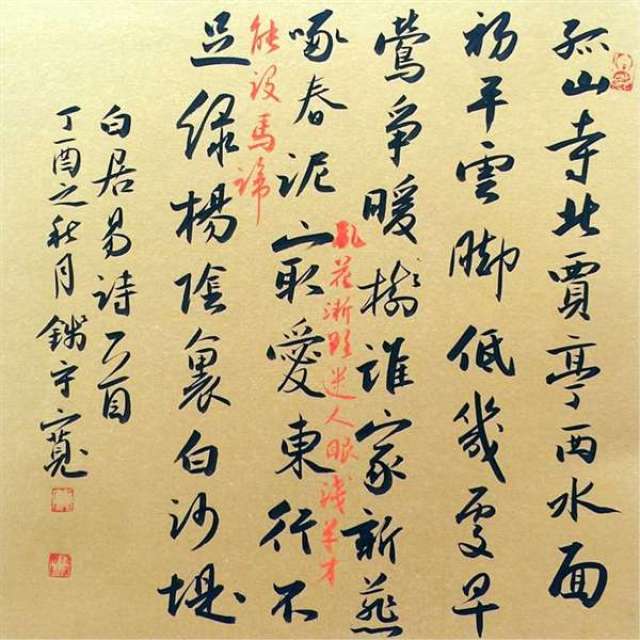 孤山寺北賈亭西水面
初平雲脚低幾處早
鶯爭暖樹誰家新燕
亂花漸欲迷人眼淺草才
啄春泥最愛東行不
能沒馬蹄
足綠楊陰裏白沙堤
白居易詩一首
丁酉之秋月錢守寬